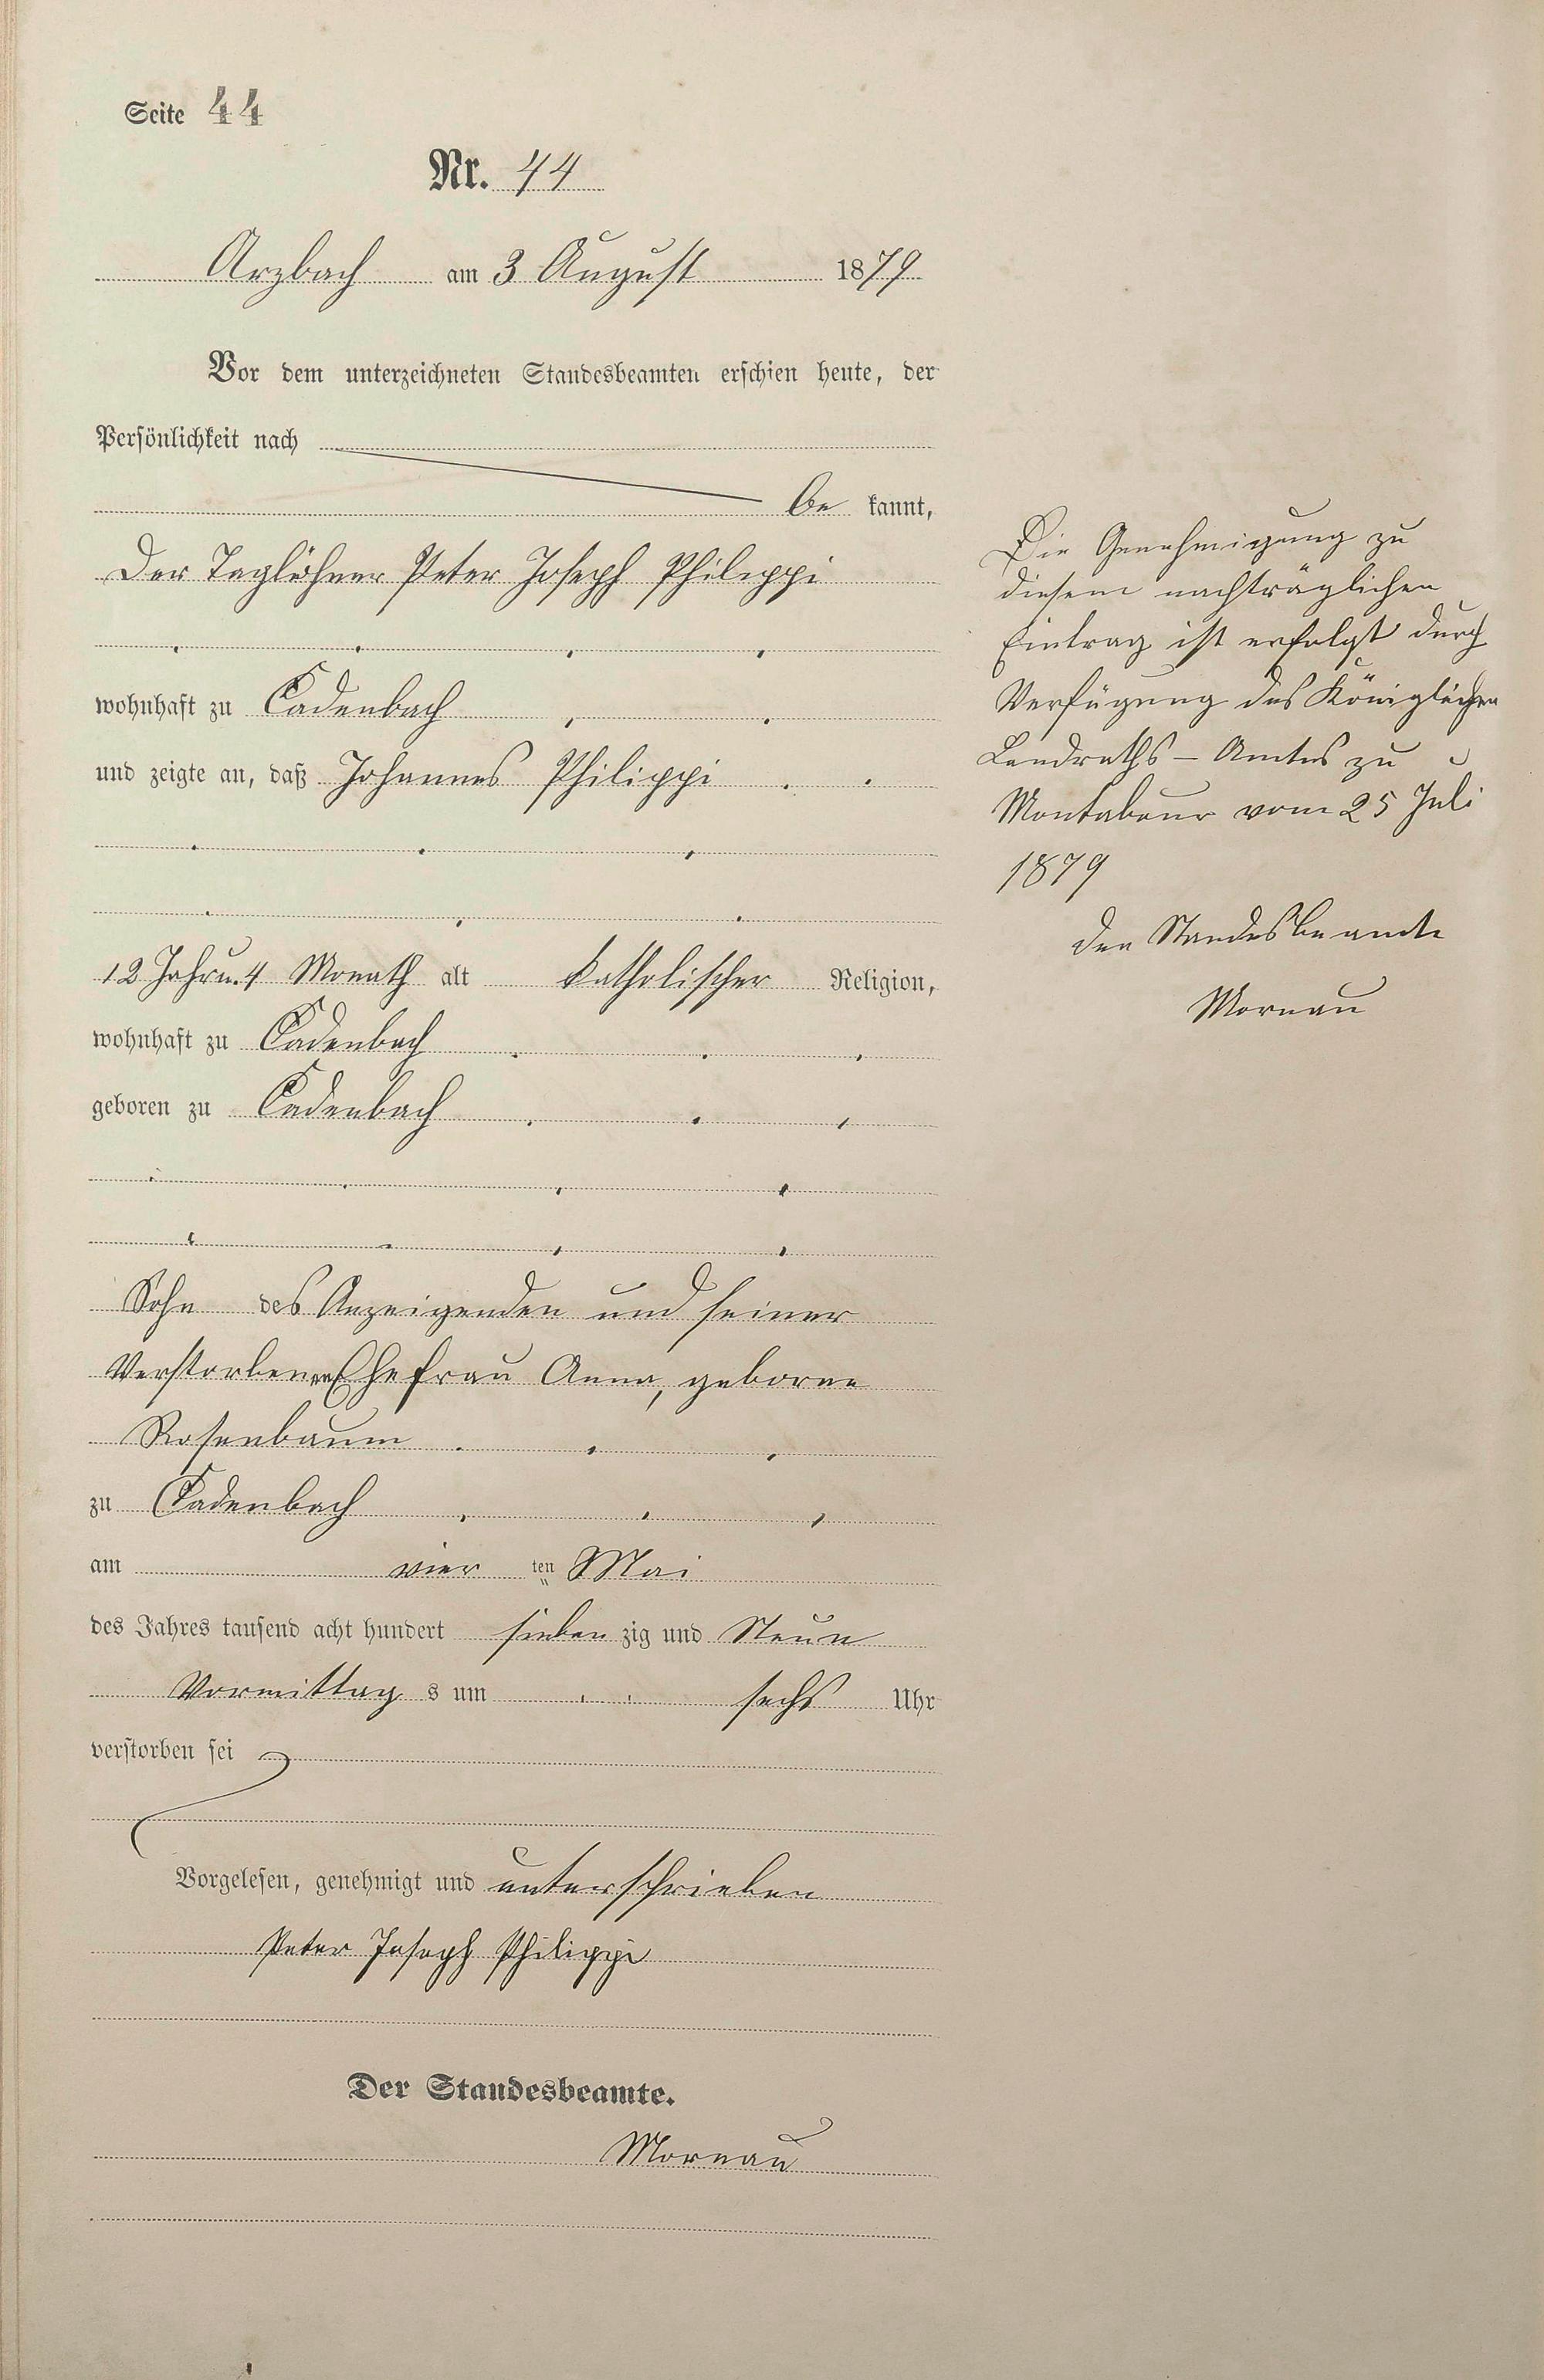 Seite 44
Nr. 44
Arzbach am 3 August 1879
Vor dem unterzeichneten Standesbeamten erschien heute, der
Persönlichkeit nach
be kannt,
Der Taglöhner Peter Joseph Philippi
wohnhaft zu Cadenbach
und zeigte an, daß Johannes Philippi
12 Jahr u. 4 Monath alt katholischer Religion,
wohnhaft zu Cadenbach
geboren zu Cadenbach
Sohn des Anzeigenden und seiner
Verstorbenen Ehefrau Anna, geborne
Rosenbaum
zu Cadenbach
am vier ten Mai
des Jahres tausend acht hundert sieben zig und Neun
Vormittag s um sechs Uhr
verstorben sei
Vorgelesen, genehmigt und unterschrieben
Peter Joseph Philippi
Der Standesbeamte.
Mornau
Die Genehmigung zu
diesem nachträglichen
Eintrag ist erfolgt durch
Verfügung des Königlichen
Landraths - Amtes zu
Montabaur vom 25 Juli
1879
der Standesbeamte
Mornau